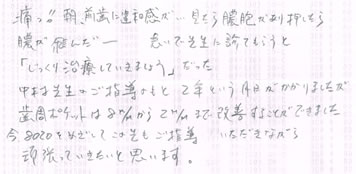 痛っ!! 朝、前歯に違和感が… 見たら膿胞があり押したら
膿が組んだー 急いで先生に診てもらうと
「じっくり治療していきましょう」だった
先生のご指導のもと 2年という月日がかかりましたが
歯周ポケットは8㎜から2㎜まで改善することができました
今8020をめざしてこの先もご指導 いただきながら
頑張っていきたいと思います。